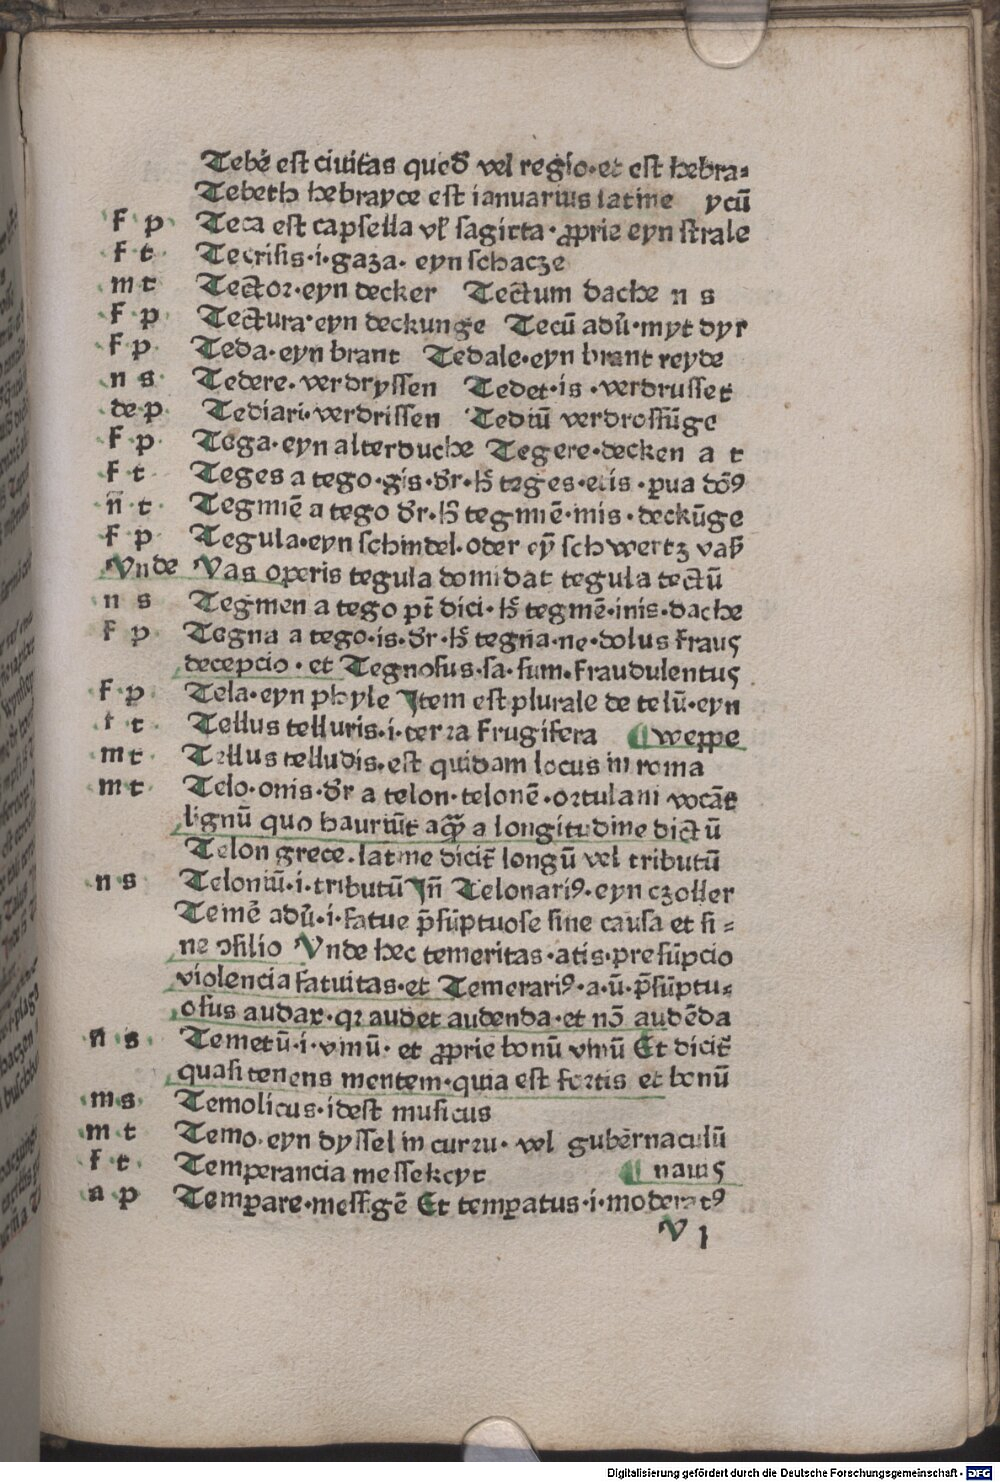 Tebē est ciuitas quedā vel regio·et est hebra⸗
Tebeth hebrayce est ianuarius latine ycū
f p Teca est capsella vl' sagitta· ꝓprie eyn strale
f t Tecrisis·i·gaza· eyn schacze
m t Tector·eyn decker Tectum dache n s
f p Tectura·eyn deckunge Tecū adū·myt dyr
f p Teda·eyn brant Tedale·eyn brant reyde
n s Tedere·verdryssen Tedet·is·verdrusset
de p Tediari·verdrissen Tediū verdrossūge
f p Tega·eyn alterduche Tegere·decken a t
f t Teges a tego·gis·dr̄·h̄ teges·etis·ꝑua domꝰ
n̄ t Tegmē a tego dr̄·h̄ tegmē·mis·deckūge
f p Tegula·eyn schindel·oder eȳ schwertz vaß
Vnde Vas operis tegula domidat tegula tectū
n s Tegmen a tego pt̄ dici·h̄ tegmē·inis·dache
f p Tegna a tego·is·dr̄·h̄ tegna·ne·dolus fraus
decepcio·et Tegnosus·sa·sum·fraudulentus
f p Tela·eyn phyle Item est plurale de telū·eyn
f t Tellus telluris·i·terra frugifera ¶ weppe
m t Tellus telludis·est quidam locus in roma
m t Telo·onis·dr̄ a telon·telonē·ortulani vocāt
lignū quo hauriūt aquā a longitudine dictū
Telon grece·latine dicit̄ longū vel tributū
n s Teloniū·i·tributū Iñ Telonariꝰ·eyn czoller
Temē adū·i·fatue p̄sūptuose sine causa et si⸗
ne ꝯsilio Vnde hec temeritas·atis·presūpcio
violencia fatuitas·et Temerariꝰ·a·ū·p̄sūptu⸗
osus audax·qꝛ audet audenda·et nō audēda
n s Temetū·i·vinū· et ꝓprie bonū vinū Et dicit̄
quasi tenens mentem·quia est fortis et bonū
m s Temolicus·idest musicus
m t Temo·eyn dyssel in curru· vel gubernaculū
f t Temperancia messekeyt ¶ nauis
a p Temꝑare·messigē Et temꝑatus·i·moderatꝰ
V 1
Digitalisierung gefördert durch die Deutsche Forschungsgemeinschaft - DFG